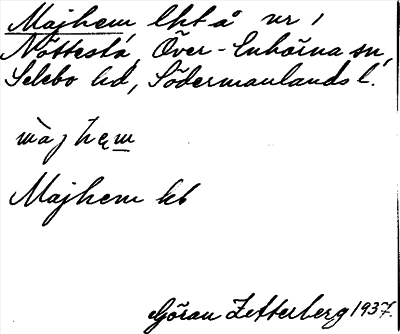 Majhem lht å nr 1
Nöttesta, Över-Enhörna sn,
Selebo hd, Södermanlands l.
màjhęm
Majhem kb
Göran Zetterberg 1937.